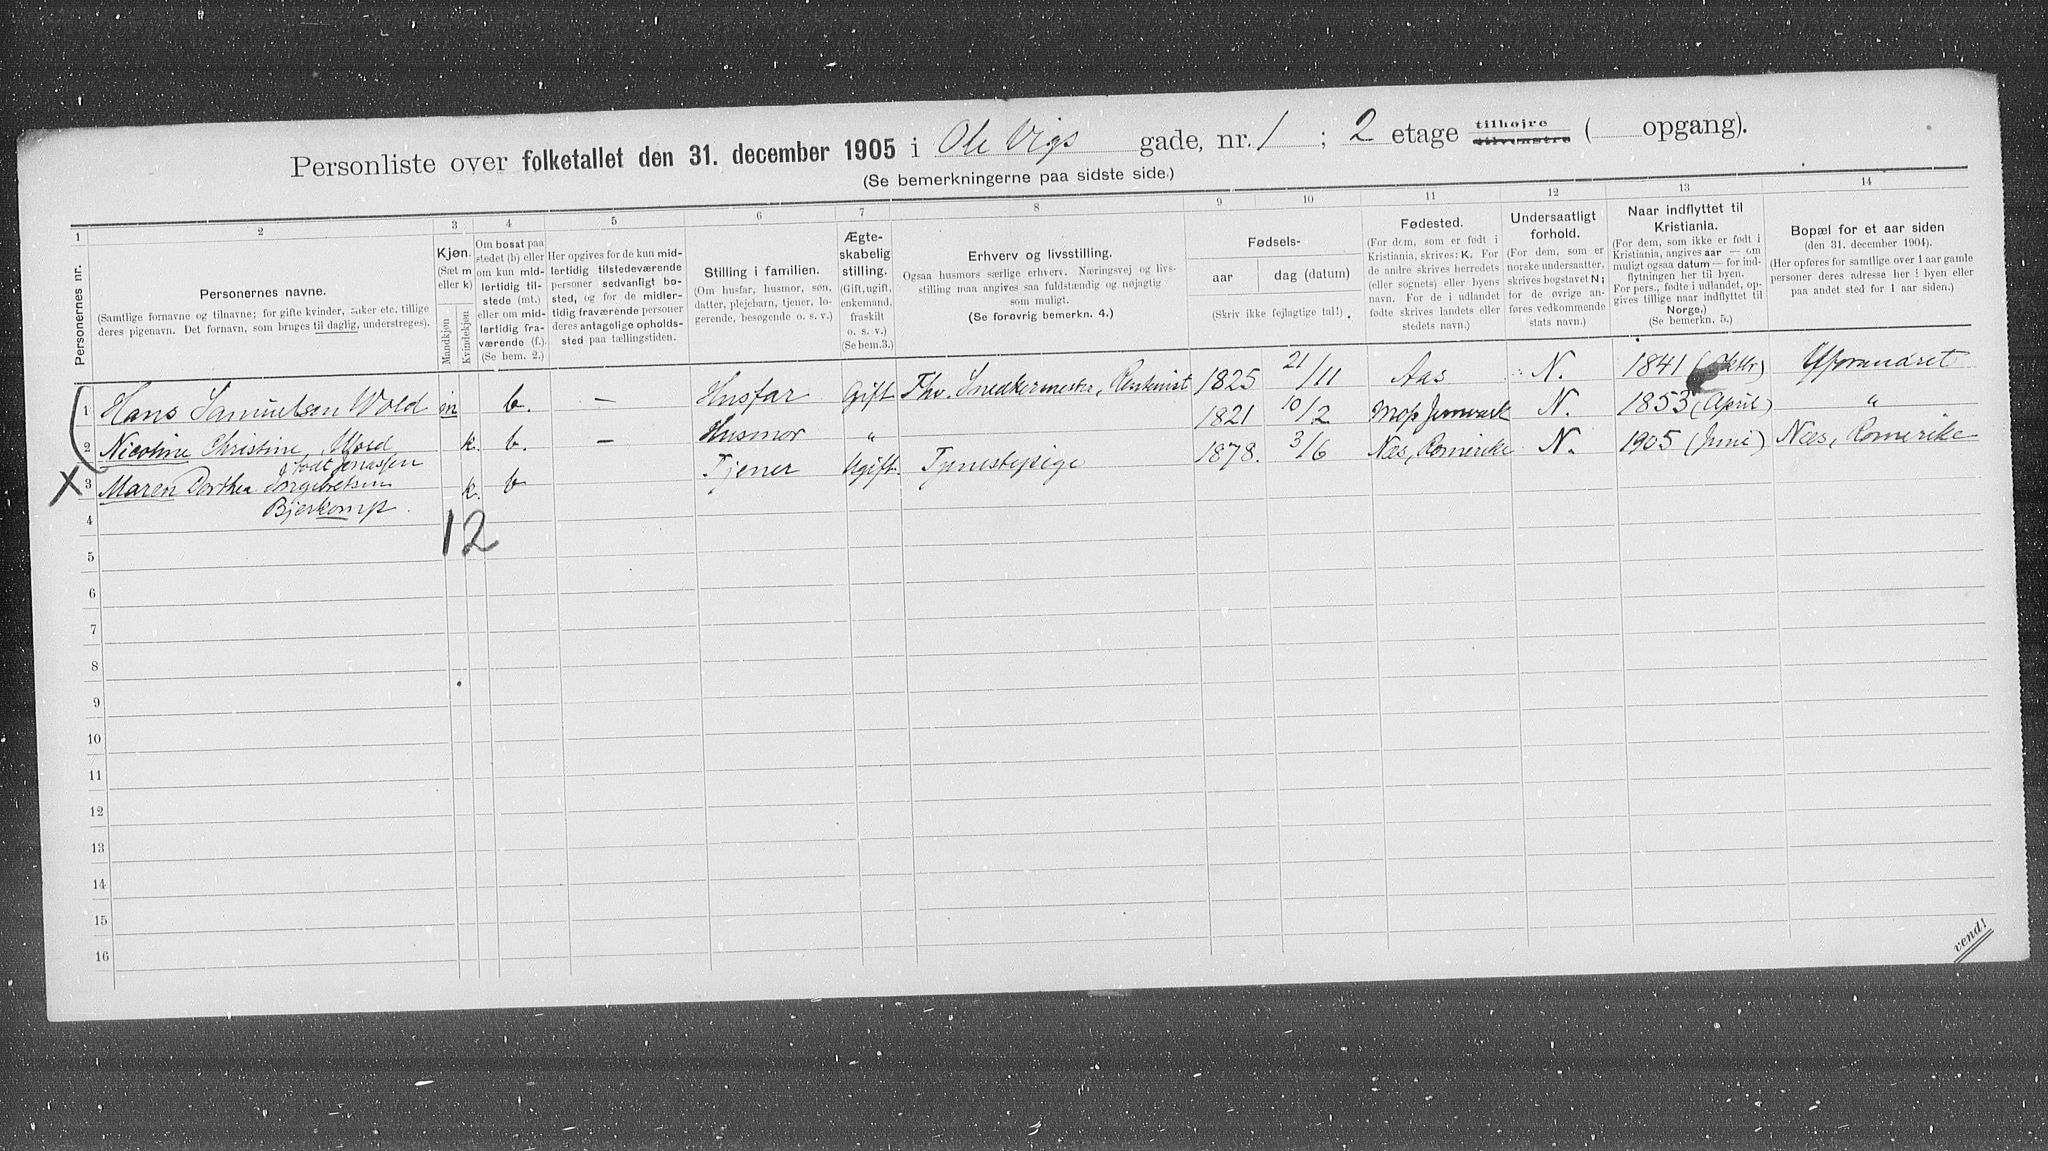 Personliste over folketallet den 31. december 1905 i Ole Vigs gade, nr. 1 ; 2 etage tilhøjre tilvenstre ( opgang).
(Se bemerkningerne paa sidste side.)
1 2 3 4 5 6 7 8 9 10 11 12 13 14
Personernes nr.
Personernes navne.
(Samtlige fornavne og tilnavne; for gifte kvinder, enker etc. tillige
deres pigenavn. Det fornavn, som bruges til daglig, understreges).
Kjøn.
(Sæt m
eller k)
Mandkjøn
Kvindekjøn
Om bosat paa
stedet (b) eller
om kun mid-
lertidig til-
stede (mt.)
eller om mid-
lertidig fra-
værende (f.).
(Se bem. 2,)
Her opgives for de kun mid-
lertidig tilstedeværende
personer sedvanlig bo-
sted, og for de midler-
tidig fraværende personer
deres antagelige opholds-
sted paa tællingstiden.
Stilling i familien.
(Om husfar, husmor, søn,
datter, plejebarn, tjener, lo-
gerende, besøgende o. s. v.)
Ægte-
skabelig
stilling.
(Gift, ugift,
enkemand,
fraskilt
o. s. v.)
(Se bem.3.)
Erhverv og livsstilling.
Ogsaa husmors særlige erhverv. Næringsvej og livs-
stilling maa angives saa fuldstændig og nøjagtig
som muligt.
(Se forøvrig bemerkn. 4.)
Fødsels-
aar dag (datum)
(Skriv ikke fejlagtige tal!) .
Fødested.
(For dem, som er født i
Kristiania, skrives: K. For
de andre skrives herredets
(eller sognets) eller byens
navn. For de i udlandet
fødte skrives landets eller
stedets navn.)
Undersaatligt
forhold.
(For dem, som er
norske undersaatter,
skrives bogstavet N;
for de øvrige an-
føres vedkommende
stats navn.)
Naar indflyttet til
Kristiania.
(For dem, som ikke er født i
Kristiania, angives aar — om
muligt ogsaa datum — for ind-
flytningen her til byen.
For pers., fødte i udlandet, op-
gives tillige naar indflyttet til
Norge.)
(Se bemerkn. 5.)
Bopæl for et aar siden
(den 31. december 1904).
(Her opføres for samtlige over 1 aar gamle
personer deres adresse her i byen eller
paa andet sted for 1 aar siden.)
1 Hans Samuelsen Wold m b. — Husfar Gift Fhv. Snedkermester, Rentenist 1825 21/11 Aas N. 1841 (Oktbr) Uforandret
2 Nicoline Christine Wold k. b. — Husmor " 1821 10/2 Jernverk N. 1853 (April) "
født Jenassen
X 3 Maren Dorthea Ingebretsen k. b Tjener Ugift Tjenestepige 1878. 3/6 Næs, Romerike N. 1905 (Juni) Næs, Romerike
Bjerkomp.
4
12
5
6
7
8
9
10
11
12
13
14
15
16
vend!